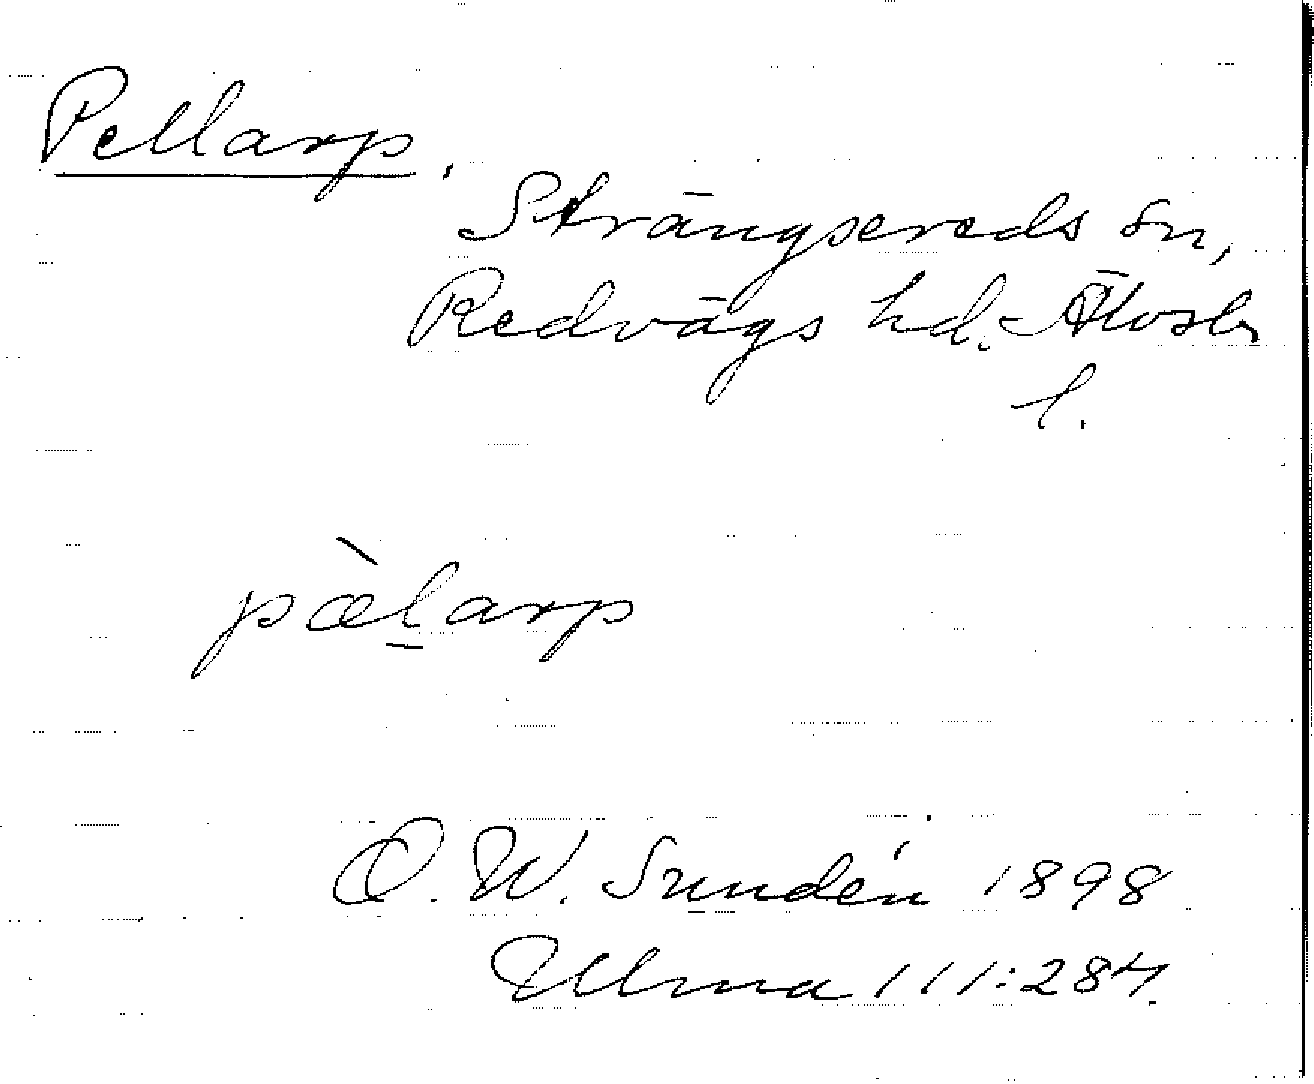 Pellarp.
Strängsereds sn,
Redvägs hd. Älvsb
l.
pæ̀l̠arp
O. W. Sundén 1898
Ulma 111:284.